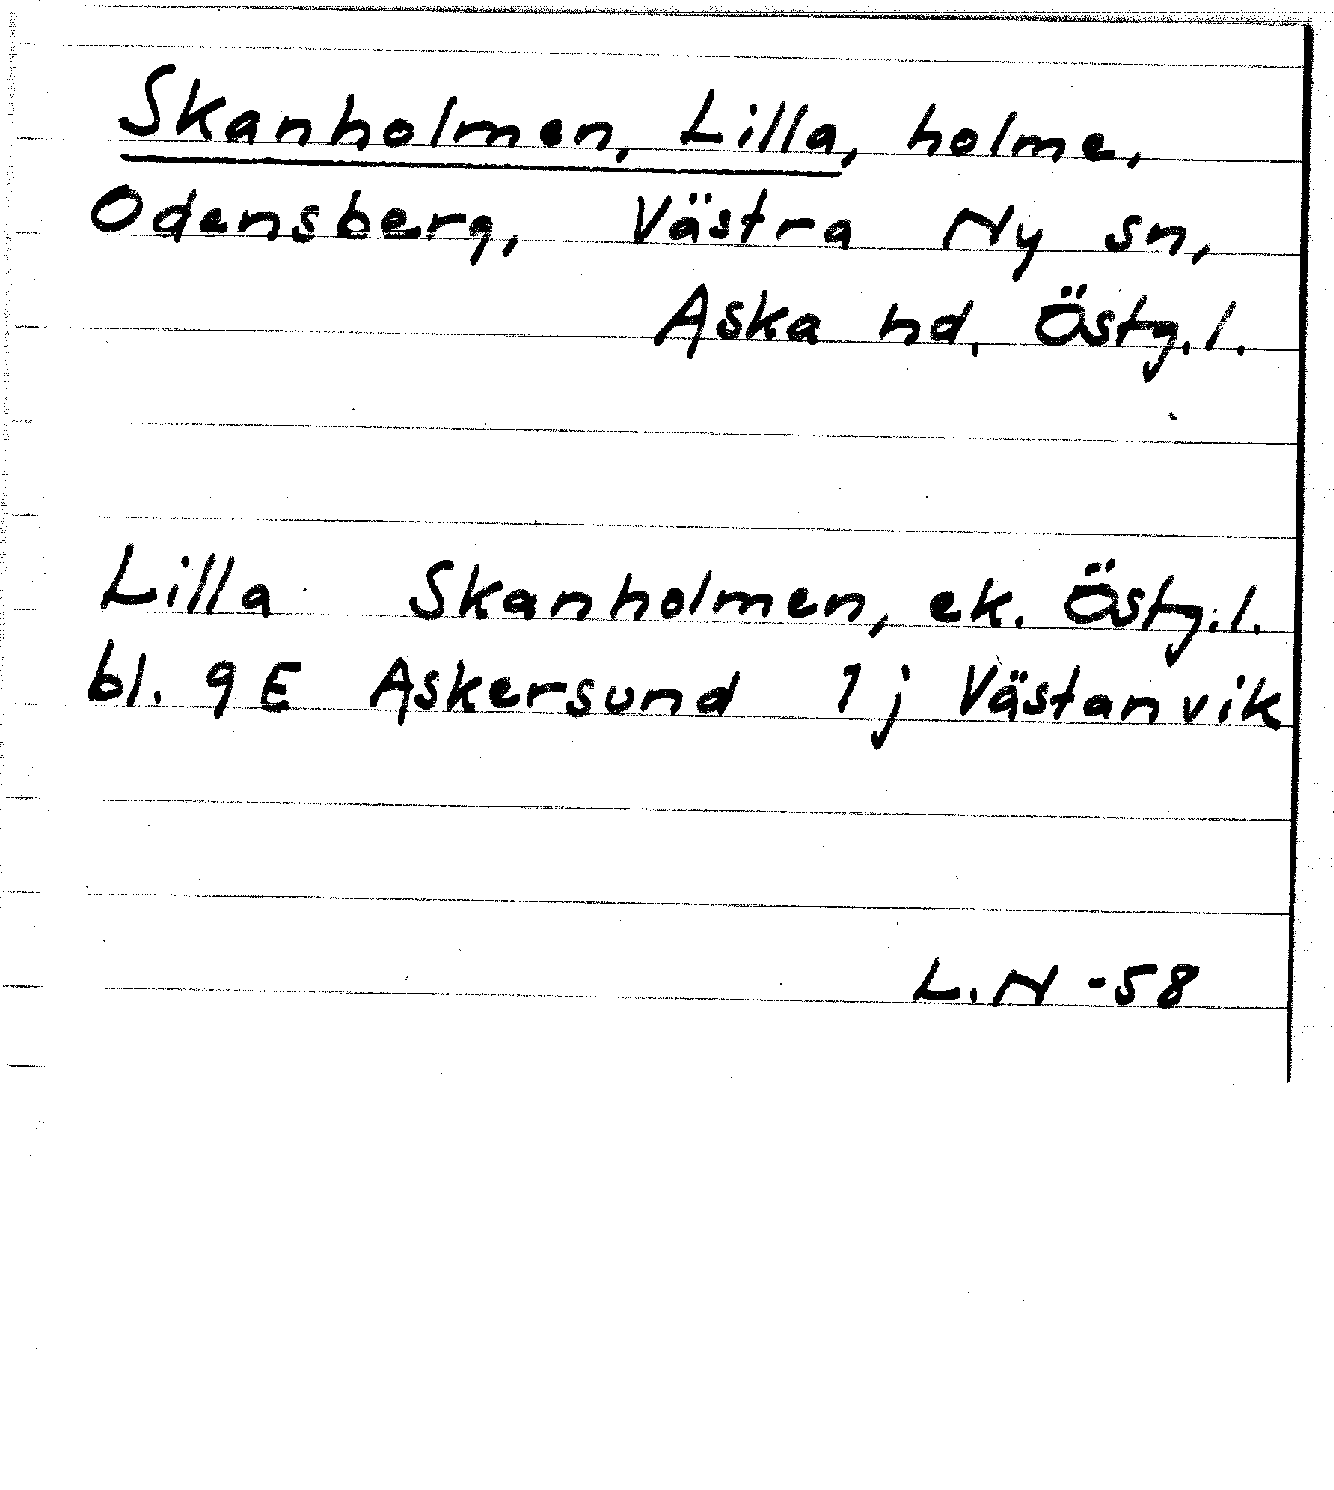 Skanholmen, Lilla, holme,
Odensberg, Västra Ny sn,
Aska hd, Östg. l.
Lilla Skanholmen, ek. Östg. l.
bl. 9E Askersund 1j Västanvik
L.N -58